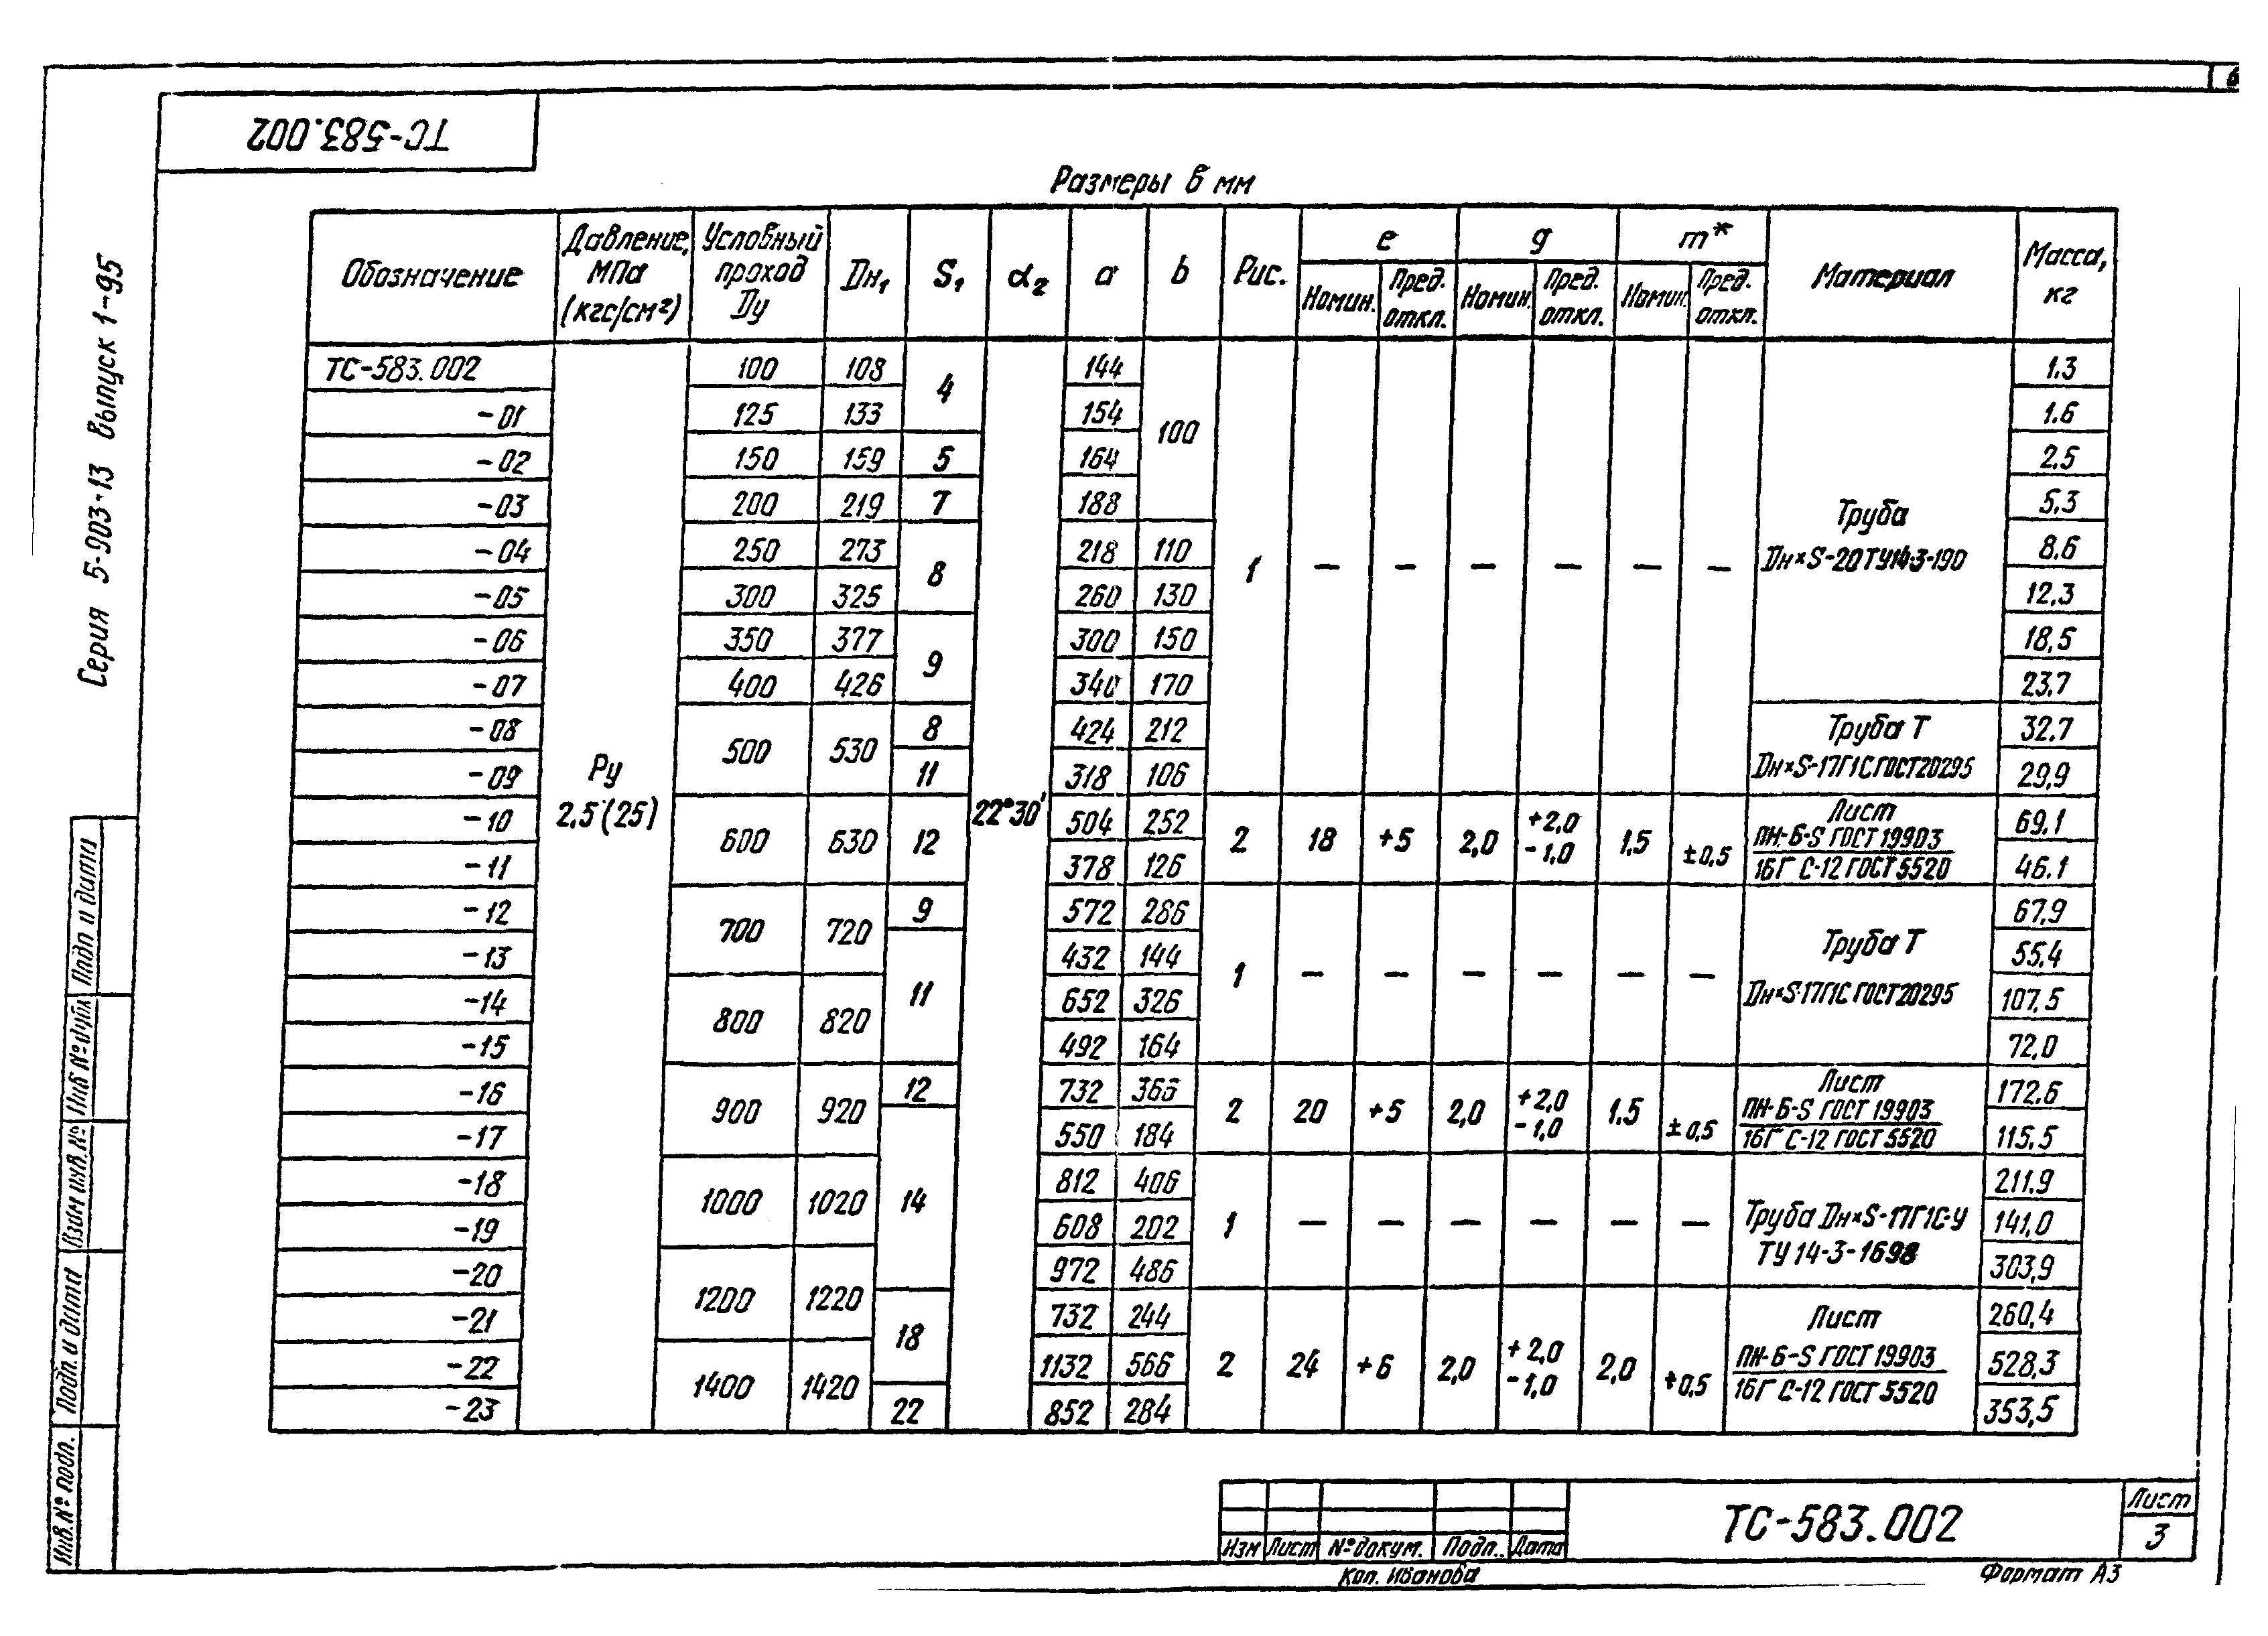 6
ТС-583.002
Серия 5-903-13 Выпуск 1-95
Размеры в мм
Обозначение | Давление, МПа (кгс/см²) | Условный проход Ду | Дн₁ | S₁ | α₂ | a | b | Рис. | e | g | m* | Материал | Масса, кг
Номин. | Пред. откл. | Номин. | Пред. откл. | Номин. | Пред. откл.
ТС-583.002 | 100 | 108 | 4 | 144 | 100 | 1.3
-01 | 125 | 133 | 154 | 1.6
-02 | 150 | 159 | 5 | 164 | 2.5
-03 | 200 | 219 | 7 | 188 | 5,3
Труба
-04 | 250 | 273 | 8 | 218 | 110 | 1 | — | — | — | — | — | — | Дн×S-20ТУ14-3-190 | 8.6
-05 | 300 | 325 | 260 | 130 | 12,3
-06 | 350 | 377 | 9 | 300 | 150 | 18,5
-07 | 400 | 426 | 340 | 170 | 23,7
-08 | 500 | 530 | 8 | 424 | 212 | Труба Т | 32.7
-09 | 11 | 318 | 106 | Дн×S-17Г1С ГОСТ20295 | 29,9
Ру
2,5 (25)
22°30'
-10 | 600 | 630 | 12 | 504 | 252 | 2 | 18 | +5 | 2,0 | +2,0 -1,0 | 1,5 | ±0,5 | Лист ПН-Б-S ГОСТ 19903 | 69.1
-11 | 378 | 126 | 16Г С-12 ГОСТ 5520 | 46.1
-12 | 700 | 720 | 9 | 572 | 286 | 67.9
-13 | 11 | 432 | 144 | 1 | — | — | — | — | — | — | Труба Т | 55.4
-14 | 800 | 820 | 652 | 326 | Дн×S-17Г1С ГОСТ20295 | 107,5
-15 | 492 | 164 | 72,0
-16 | 900 | 920 | 12 | 732 | 366 | 2 | 20 | +5 | 2,0 | +2,0 -1,0 | 1.5 | ±0,5 | Лист ПН-Б-S ГОСТ 19903 | 172.6
-17 | 14 | 550 | 184 | 16Г С-12 ГОСТ 5520 | 115.5
-18 | 1000 | 1020 | 812 | 406 | 211.9
-19 | 608 | 202 | 1 | — | — | — | — | — | — | Труба Дн×S-17Г1С-У | 141,0
-20 | 1200 | 1220 | 972 | 486 | ТУ 14-3-1698 | 303,9
-21 | 18 | 732 | 244 | Лист | 260,4
-22 | 1400 | 1420 | 1132 | 566 | 2 | 24 | +6 | 2,0 | +2,0 -1,0 | 2,0 | +0,5 | ПН-Б-S ГОСТ 19903 | 528,3
-23 | 22 | 852 | 284 | 16Г С-12 ГОСТ 5520 | 353,5
Подп и дата
Инв №дубл
Взам инв.№
Подп. и дата
Инв.№ подл.
Изм | Лист | №докум. | Подп. | Дата
ТС-583.002
Лист
3
Коп. Иванова
Формат А3